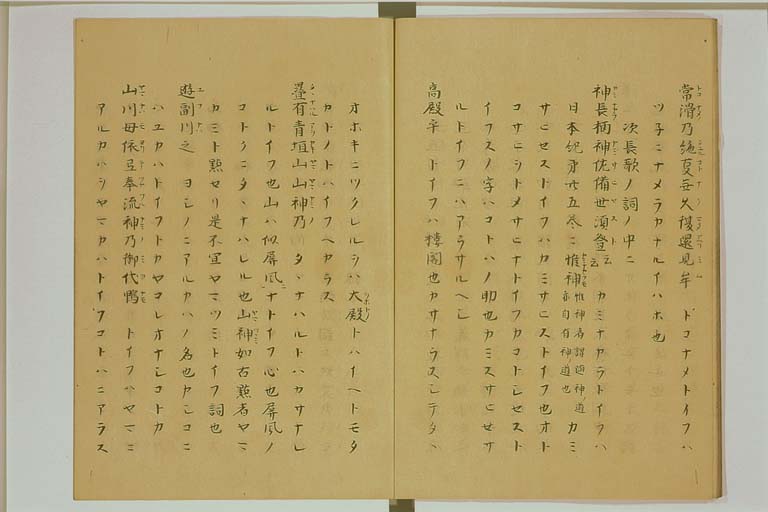 常滑乃絶夏無久復還見牟 トコナメトイフハ
ツ子ニナメラカナルイハホ也
次長歌ノ詞ノ中ニ
神長柄神佐備世須登云云 カミナカラトイフハ
日本紀第廿五巻ニ惟神 惟神者謂随神道亦自有神道也 カミ
サヒセストイフハカミサヒストイフ也オト
コサヒシトメサヒナトイフカコトシセスト
イフスノ字ハコトハノ助也カミスサヒセサ
ルトイフニハアラサルヘシ
高殿乎 トイフハ樓閣也カサナラスシテタヽ
オホキニツクレルヲハ大殿トハイヘトモタ
カトノトハイフヘカラス
疊有青垣山山神乃 タヽナハルトハカサナレ
ルトイフ也山ハ似屏風ナトイフ心也屏風ノ
コトクニタヽナハレル也山神如古點者ヤマ
カミト點セリ是不宜ヤマツミトイフ詞也
遊副川之 ヨシノニアルカハノ名也カシコニ
ハユカハトイフトカヤコレオナシコトカ
山川母依弖奉流神乃御代鴨 トイフハヤマニ
アルカハヲヤマカハトイフコトハニアラス